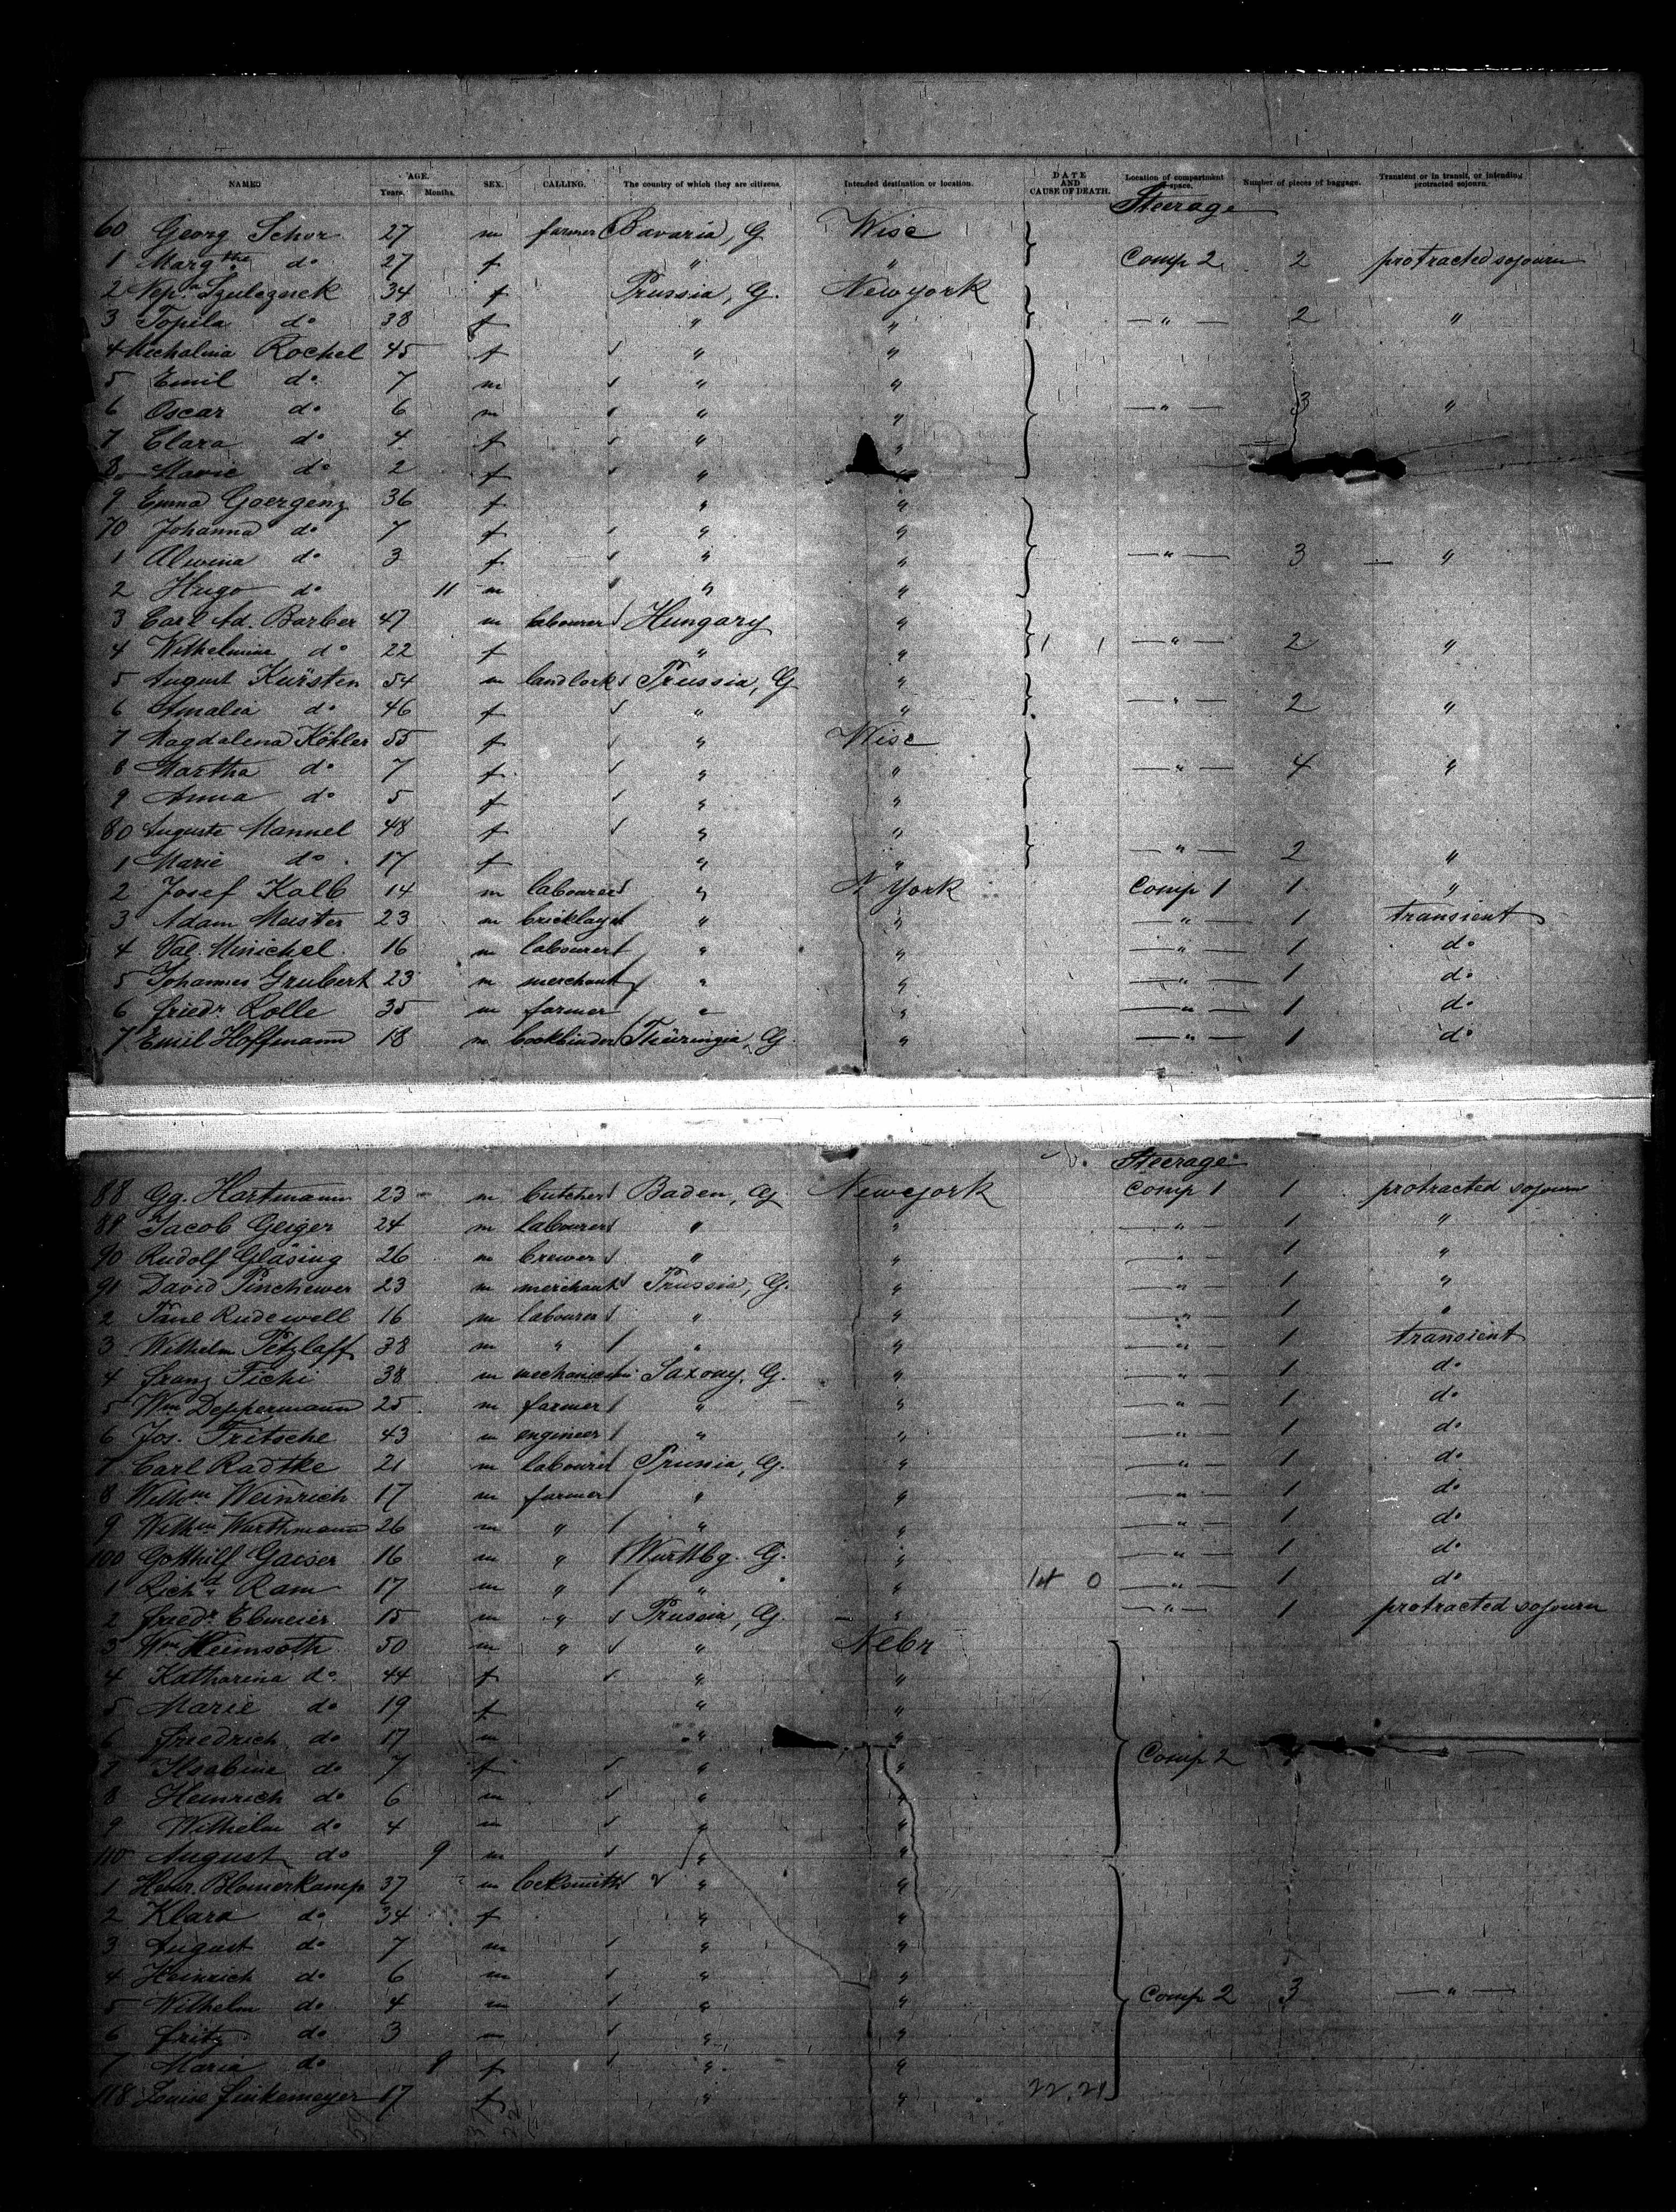 NAMES AGE. Years. Months. SEX. CALLING. The country of which they are citizens. Intended destination or location. DATE AND CAUSE OF DEATH. Location of compartment or space. Number of pieces of baggage. Transient or in transit, or intending protracted sojourn.
Steerage
60 Georg Schor 27 m farmer Bavaria, G Wisc
1 Margthe do 27 f " " Comp 2 2 protracted sojourn
2 34 f Prussia, G. New York
3 Topila do 38 f " " — " — 2 "
4 Michalina Rochel 45 f " "
5 Emil do 7 m " "
6 Oscar do 6 m " " — " — 3 "
7 Clara do 4 f " "
8 Marie do 2 f " "
9 Emma Goergenz 36 f " "
70 Johanna do 7 f " "
1 Alwina do 3 f " " — " — 3 "
2 Hugo do 11 m " "
3 Carl Ad. Barber 47 m labourer Hungary "
4 Wilhelmine do 22 f " " 1 1 — " — 2 "
5 August Kürsten 54 m Prussia, G "
6 Amalia do 46 f " " — " — 2 "
7 Magdalena Köhler 55 f " Wisc
8 Martha do 7 f " " — " — 4 "
9 Anna do 5 f " "
80 Auguste Mannel 48 f " "
1 Marie do 17 f " " — " — 2 "
2 Josef Kalb 14 m labourer " N York Comp 1 1 "
3 Adam Meister 23 m bricklayer " " — " — 1 transient
4 Val. Minichel 16 m labourer " " — " — 1 do
5 Johannes Grubert 23 m merchant " " — " — 1 do
6 Friedr Rolle 35 m farmer " " — " — 1 do
7 Emil Hoffmann 18 m bookbinder Thüringia, G. " — " — 1 do
Steerage
88 Gg. Hartmann 23 m butcher Baden, G. New York Comp 1 1 protracted sojourn
89 Jacob Geiger 24 m labourer " " — " — 1 "
90 Rudolf Gläsing 26 m brewer " " — " — 1 "
91 David Pinchewer 23 m merchant Prussia, G. " — " — 1 "
2 Paul Rudewell 16 m labourer " " — " — 1 "
3 Wilhelm Petzlaff 38 m " " " — " — 1 transient
4 Franz Fichi 38 m mechanician Saxony, G. " — " — 1 do
5 Wm Deppermann 25 m farmer " " — " — 1 do
6 Jos. Fritsche 43 m engineer " " — " — 1 do
7 Carl Radtke 21 m labourer Prussia, G. " — " — 1 do
8 Wilhm Weinrich 17 m farmer " " — " — 1 do
9 Wilhm Warthmann 26 m " " " — " — 1 do
100 Gotthilf Gaiser 16 m " Wurttbg. G. " — " — 1 do
1 Richd Ram 17 m " " " 14 0 — " — 1 do
2 Friedr Ebmeier 15 m " Prussia, G. " — " — 1 protracted sojourn
3 Wm Heimsoth 50 m " " Nebr
4 Katharina do. 44 f " "
5 Marie do 19 f " "
6 Friedrich do 17 m " "
7 Ilsabine do 7 f " " Comp 2 — " —
8 Heinrich do 6 m " "
9 Wilhelm do 4 m " "
110 August do 9 m " "
1 Heinr. Blomerkamp 37 m locksmith " "
2 Klara do 34 f " "
3 August do 7 m " "
4 Heinrich do 6 m " "
5 Wilhelm do 4 m " " Comp 2 3 — " —
6 Fritz do 3 m " "
7 Maria do 9 f " "
118 Louise Finkemeyer 17 f " " 22 21